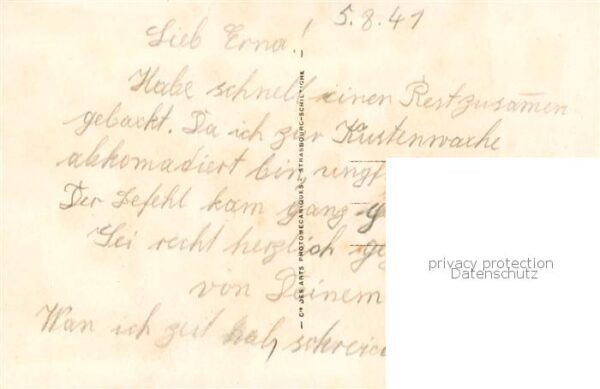 5.8.41
Lieb Erna!
Habe schnell einen Rest zusamen
gebackt. Da ich zur Küstenwache
abkomadiert bin, ungf
Der Befehl kam gang g
Sei recht herzlich geg
von Deinem
Wan ich zeit hab, schreic
— Cie DES ARTS PHOTOMECANIQUES, STRASBOURG-SCHILTIGHEIM —
privacy protection
Datenschutz